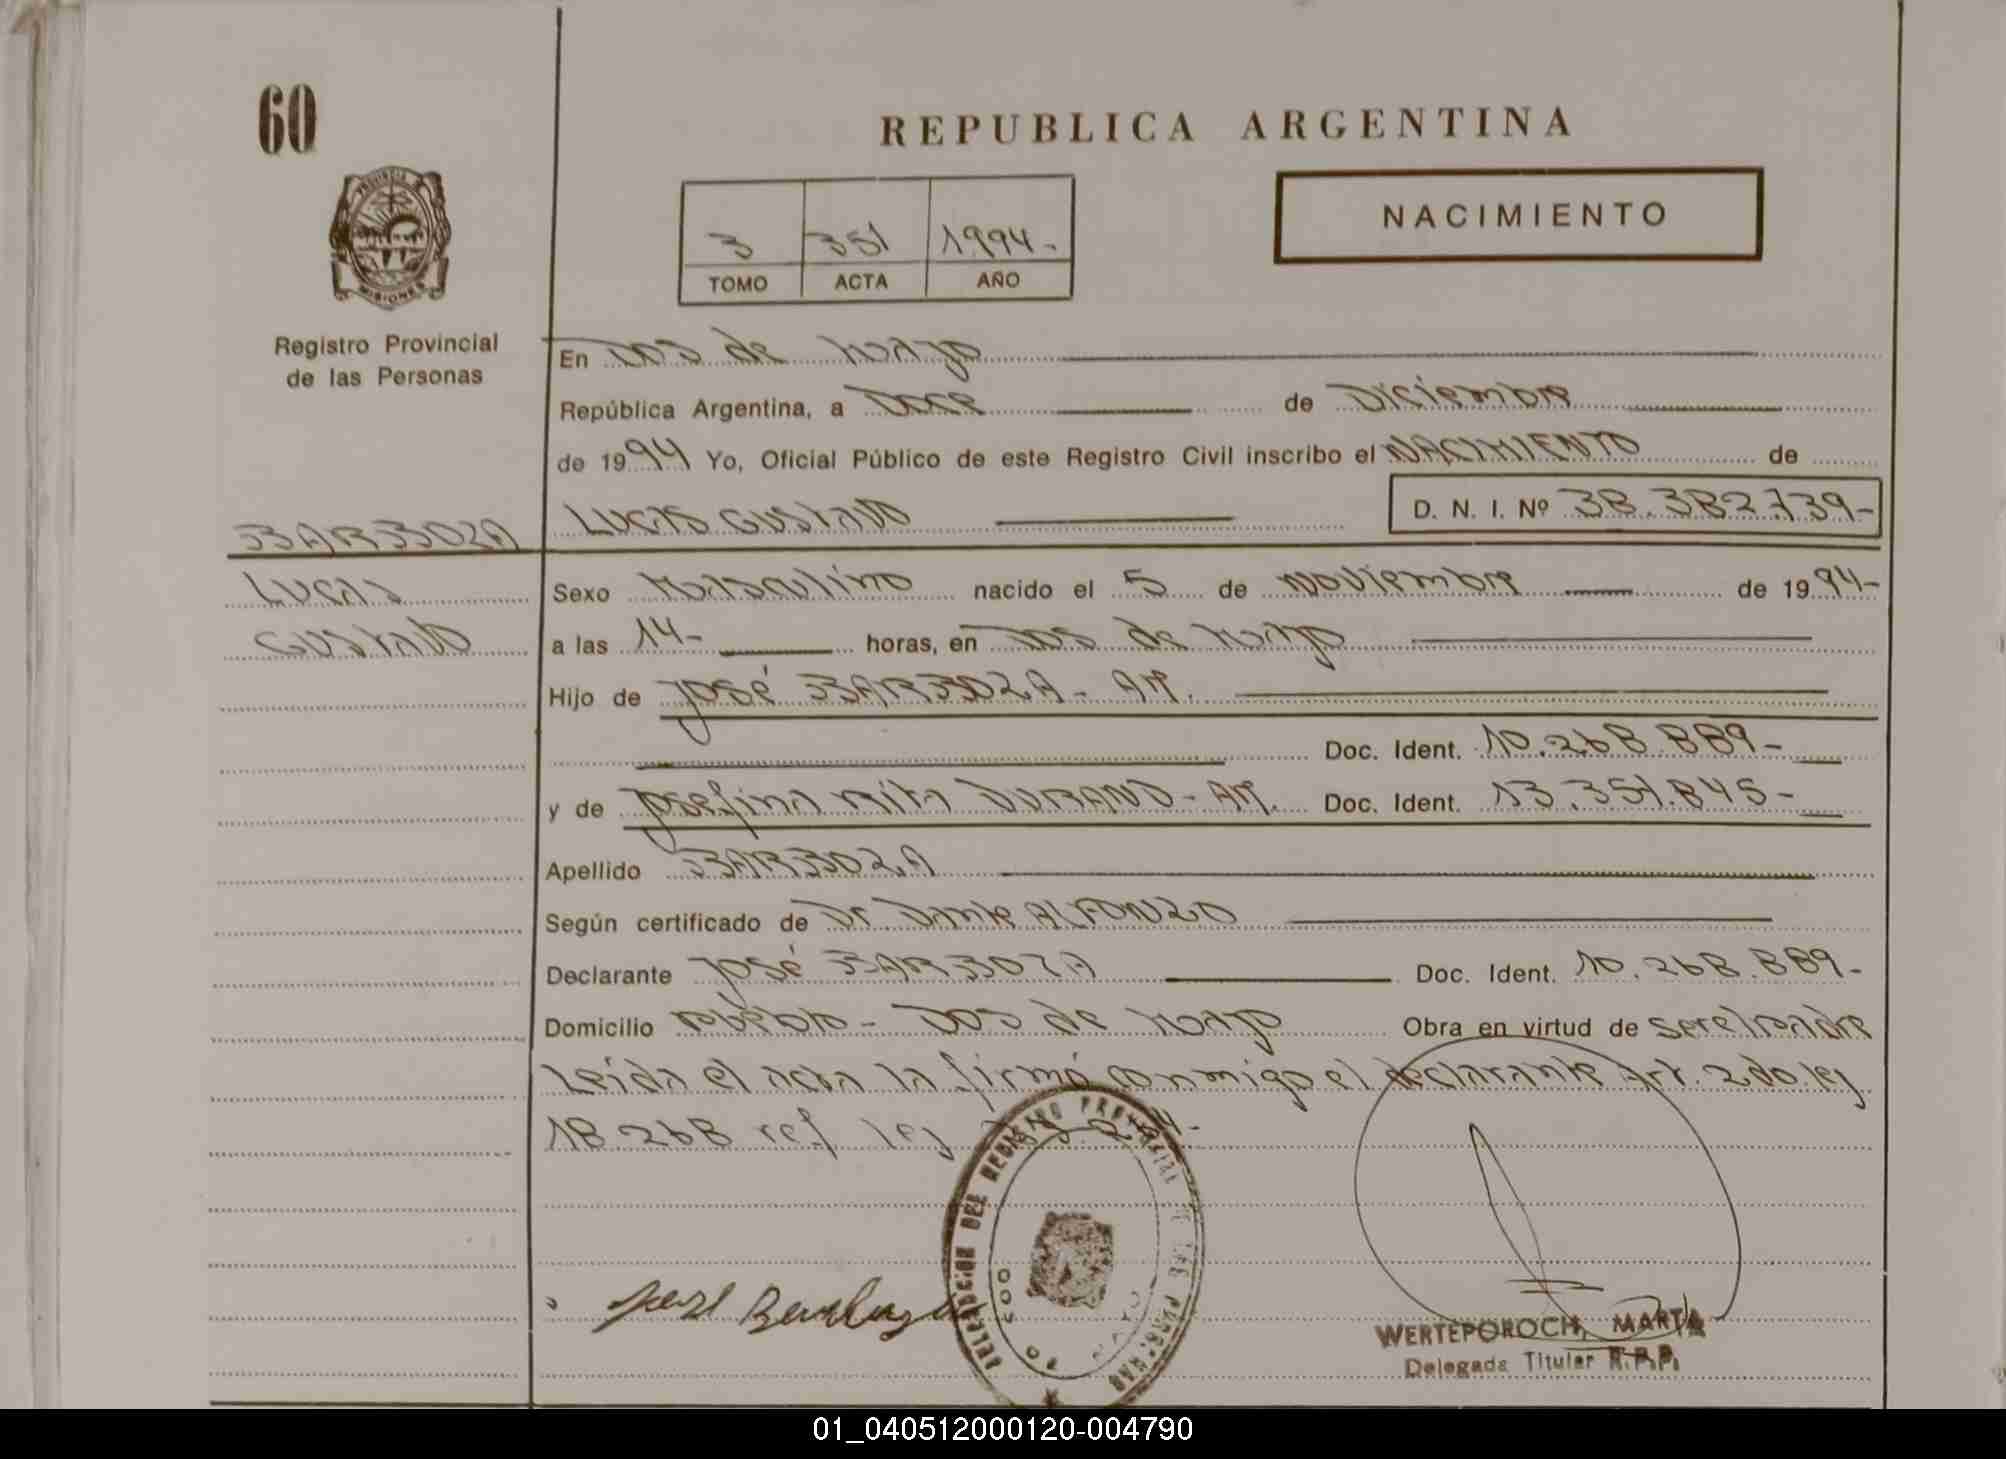 60
REPUBLICA ARGENTINA
PROVINCIA DE
MISIONES
Registro Provincial
de las Personas
NACIMIENTO
3 351 1994.
TOMO ACTA AÑO
En Dos de Mayo
República Argentina, a Doce de Diciembre
de 1994 Yo, Oficial Público de este Registro Civil inscribo el NACIMIENTO de
LUCAS GUSTAVO D. N. I. Nº 38.382.739-
BARBOZA
LUCAS
GUSTAVO
Sexo Masculino nacido el 5 de Noviembre de 1994-
a las 14- horas, en Dos de Mayo
Hijo de José BARBOZA - AR.
Doc. Ident. 10.268.889-
y de Josefina Rita DURAND - AR. Doc. Ident. 13.351.845-
Apellido BARBOZA
Según certificado de Dr. Dante ALFONZO
Declarante José BARBOZA Doc. Ident. 10.268.889-
Domicilio Pueblo - Dos de Mayo Obra en virtud de ser el padre
Leída el acta la firmó conmigo el declarante Art. 2do ley
18.268 ref. ley
DELEGACION DEL REGISTRO PROVINCIAL DE LAS PERSONAS
DOS DE MAYO
WERTEPOROCH, MARTA
Delegada Titular R.P.P.
01_040512000120-004790